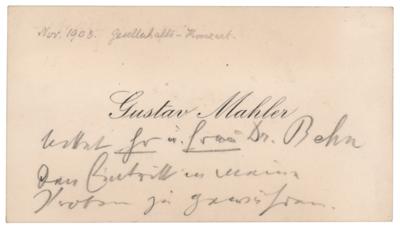 Nov. 1903. Gesellschafts-Konzert.
Gustav Mahler
bittet Hr u. Frau Dr. Behn
den Eintritt in meine
Proben zu gewähren.